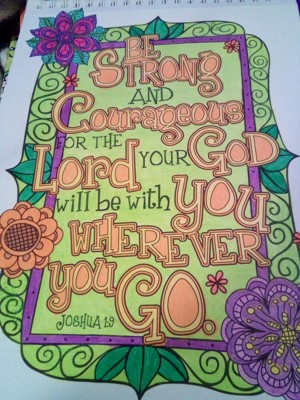 BE
STRONG
AND
Courageous
FOR THE
LORD YOUR GOD
will be with YOU
WHEREVER
you GO.
JOSHUA 1:9